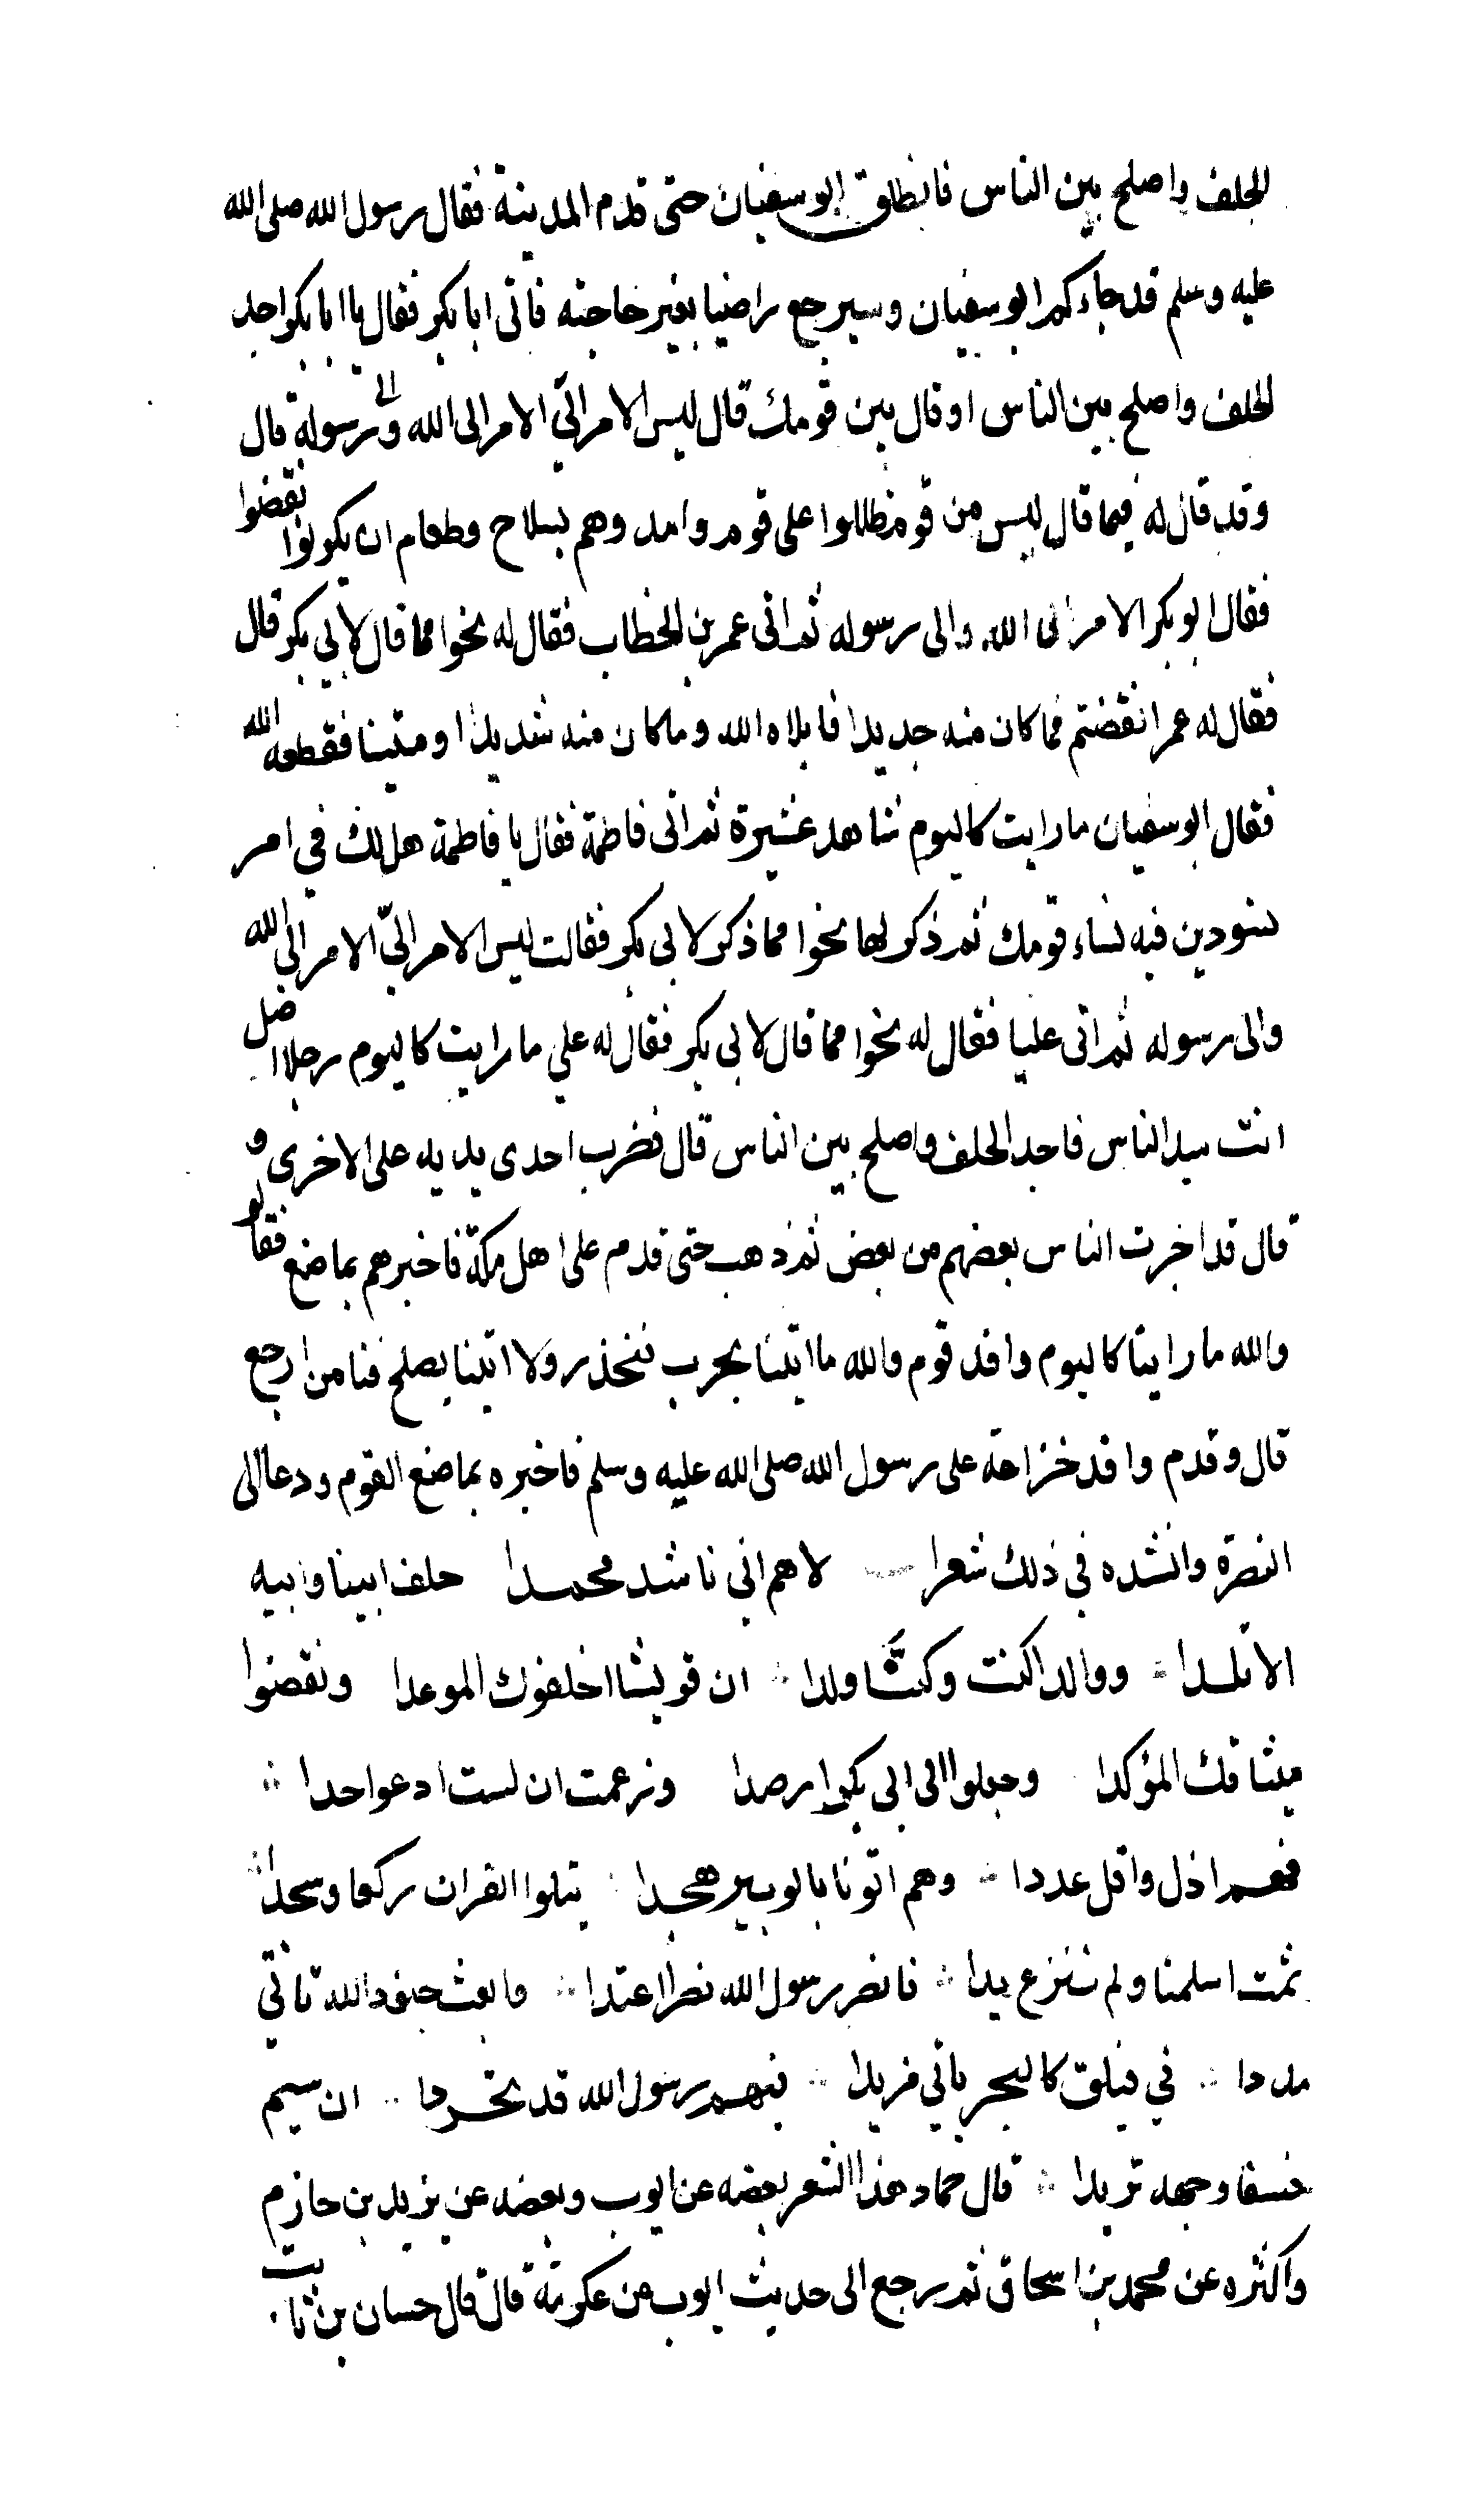 الحلف واصلح بين الناس فانطلق ابو سفيان حتى قدم المدينة فقال رسول الله صلى الله
عليه وسلم قد جاءكم ابو سفيان وسيرجع راضيا بغير حاجته فاتى ابا بكر فقال يا ابا بكر اجد
الحلف واصلح بين الناس او قال بين قومك قال ليس الامر الي الامر الى الله والى رسوله قال
وقد قال له فيما قال ليس من قوم ظللوا على قوم وامد وهم بسلاح وطعام ان يكونوا نقضوا
فقال ابو بكر الامر الى الله والى رسوله ثم اتى عمر بن الخطاب فقال له نحوا مما قال لابي بكر قال
فقال له عمر انقضتم فما كان منه جديدا فابلاه الله وما كان منه شديدا او متينا فقطعه الله
فقال ابو سفيان ما رايت كاليوم شاهد عشيرة ثم اتى فاطمة فقال يا فاطمة هل لك في امر
تسودين فيه نساء قومك ثم ذكر لها نحوا مما ذكر لابي بكر فقالت ليس الامر الي الامر الى الله
والى رسوله ثم اتى عليا فقال له نحوا مما قال لابي بكر فقال له علي ما رايت كاليوم رجلا اضل
انت سيد الناس فاجد الحلف واصلح بين الناس قال فضرب احدى يديه على الاخرى و
قال قد اجرت الناس بعضهم من بعض ثم ذهب حتى قدم على اهل مكة فاخبرهم بما صنع فقالوا
والله ما راينا كاليوم وافد قوم والله ما اتيتنا بحرب فنحذر ولا اتيتنا بصلح فنامن ارجع
قال وقدم وافد خزاعة على رسول الله صلى الله عليه وسلم فاخبره بما صنع القوم ودعا الى
النصرة وانشده في ذلك شعرا لاهم اني ناشد محمدا حلف ابينا وابيه
الاتلدا ووالدا كنت وكنا ولدا ان قريشا اخلفوك الموعدا ونقضوا
ميثاقك المؤكدا وجعلوا الى بكوا رصدا وزعمت ان لست ادعو احدا
فهم اذل واقل عددا وهم اتونا بالوبير هجدا يتلوا القران ركعا وسجدا
ثمت اسلمنا ولم ننزع يدا فانصر رسول الله نصرا اعتدا وابعث جنود الله تاتي
مددا في فيلق كالبحر ياتي مزبدا فيهم رسول الله قد تجردا ان سيم
خسفا وجهه تربدا قال حماد هذا الشعر بعضه عن ايوب وبعضه عن يزيد بن حازم
واكثره عن محمد بن اسحاق ثم رجع الى حديث ايوب عن عكرمة قال قال حسان بن ثابت